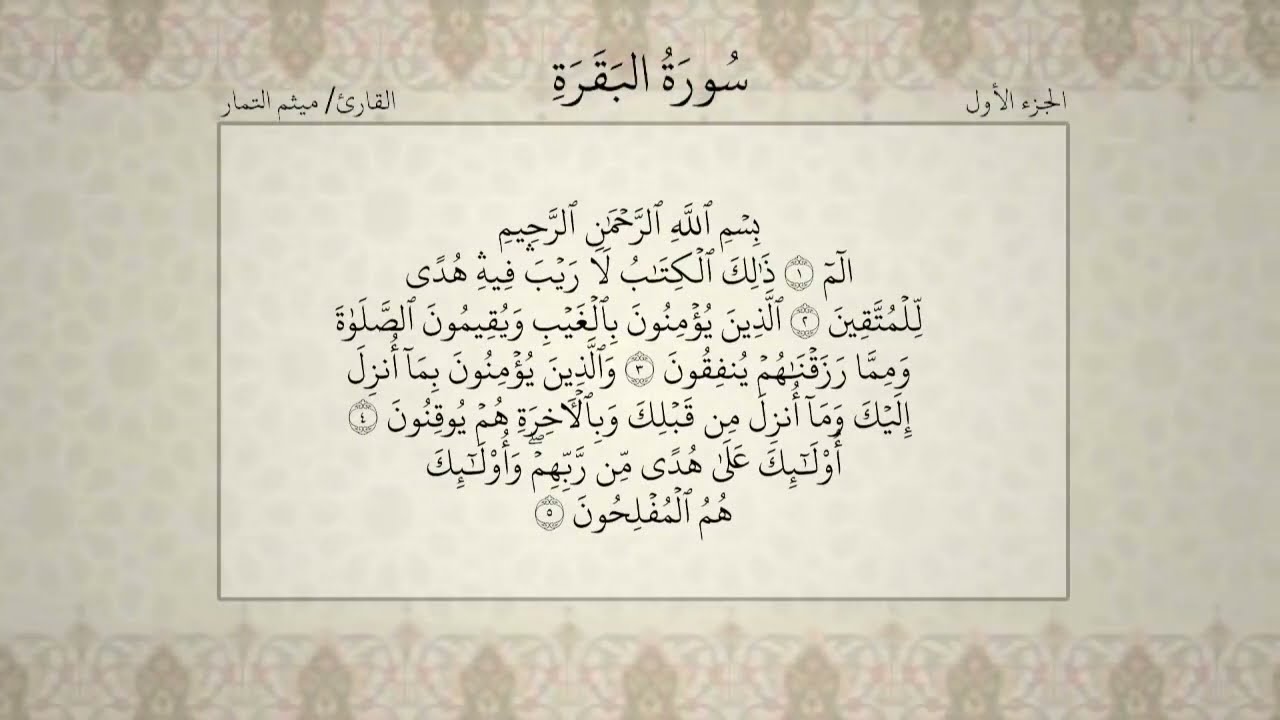 سُورَةُ البَقَرَةِ
الجزء الأول
القارئ/ ميثم التمار
بِسۡمِ ٱللَّهِ ٱلرَّحۡمَٰنِ ٱلرَّحِيمِ
الٓمٓ ١ ذَٰلِكَ ٱلۡكِتَٰبُ لَا رَيۡبَۛ فِيهِۛ هُدٗى
لِّلۡمُتَّقِينَ ٢ ٱلَّذِينَ يُؤۡمِنُونَ بِٱلۡغَيۡبِ وَيُقِيمُونَ ٱلصَّلَوٰةَ
وَمِمَّا رَزَقۡنَٰهُمۡ يُنفِقُونَ ٣ وَٱلَّذِينَ يُؤۡمِنُونَ بِمَآ أُنزِلَ
إِلَيۡكَ وَمَآ أُنزِلَ مِن قَبۡلِكَ وَبِٱلۡأٓخِرَةِ هُمۡ يُوقِنُونَ ٤
أُوْلَٰٓئِكَ عَلَىٰ هُدٗى مِّن رَّبِّهِمۡۖ وَأُوْلَٰٓئِكَ
هُمُ ٱلۡمُفۡلِحُونَ ٥